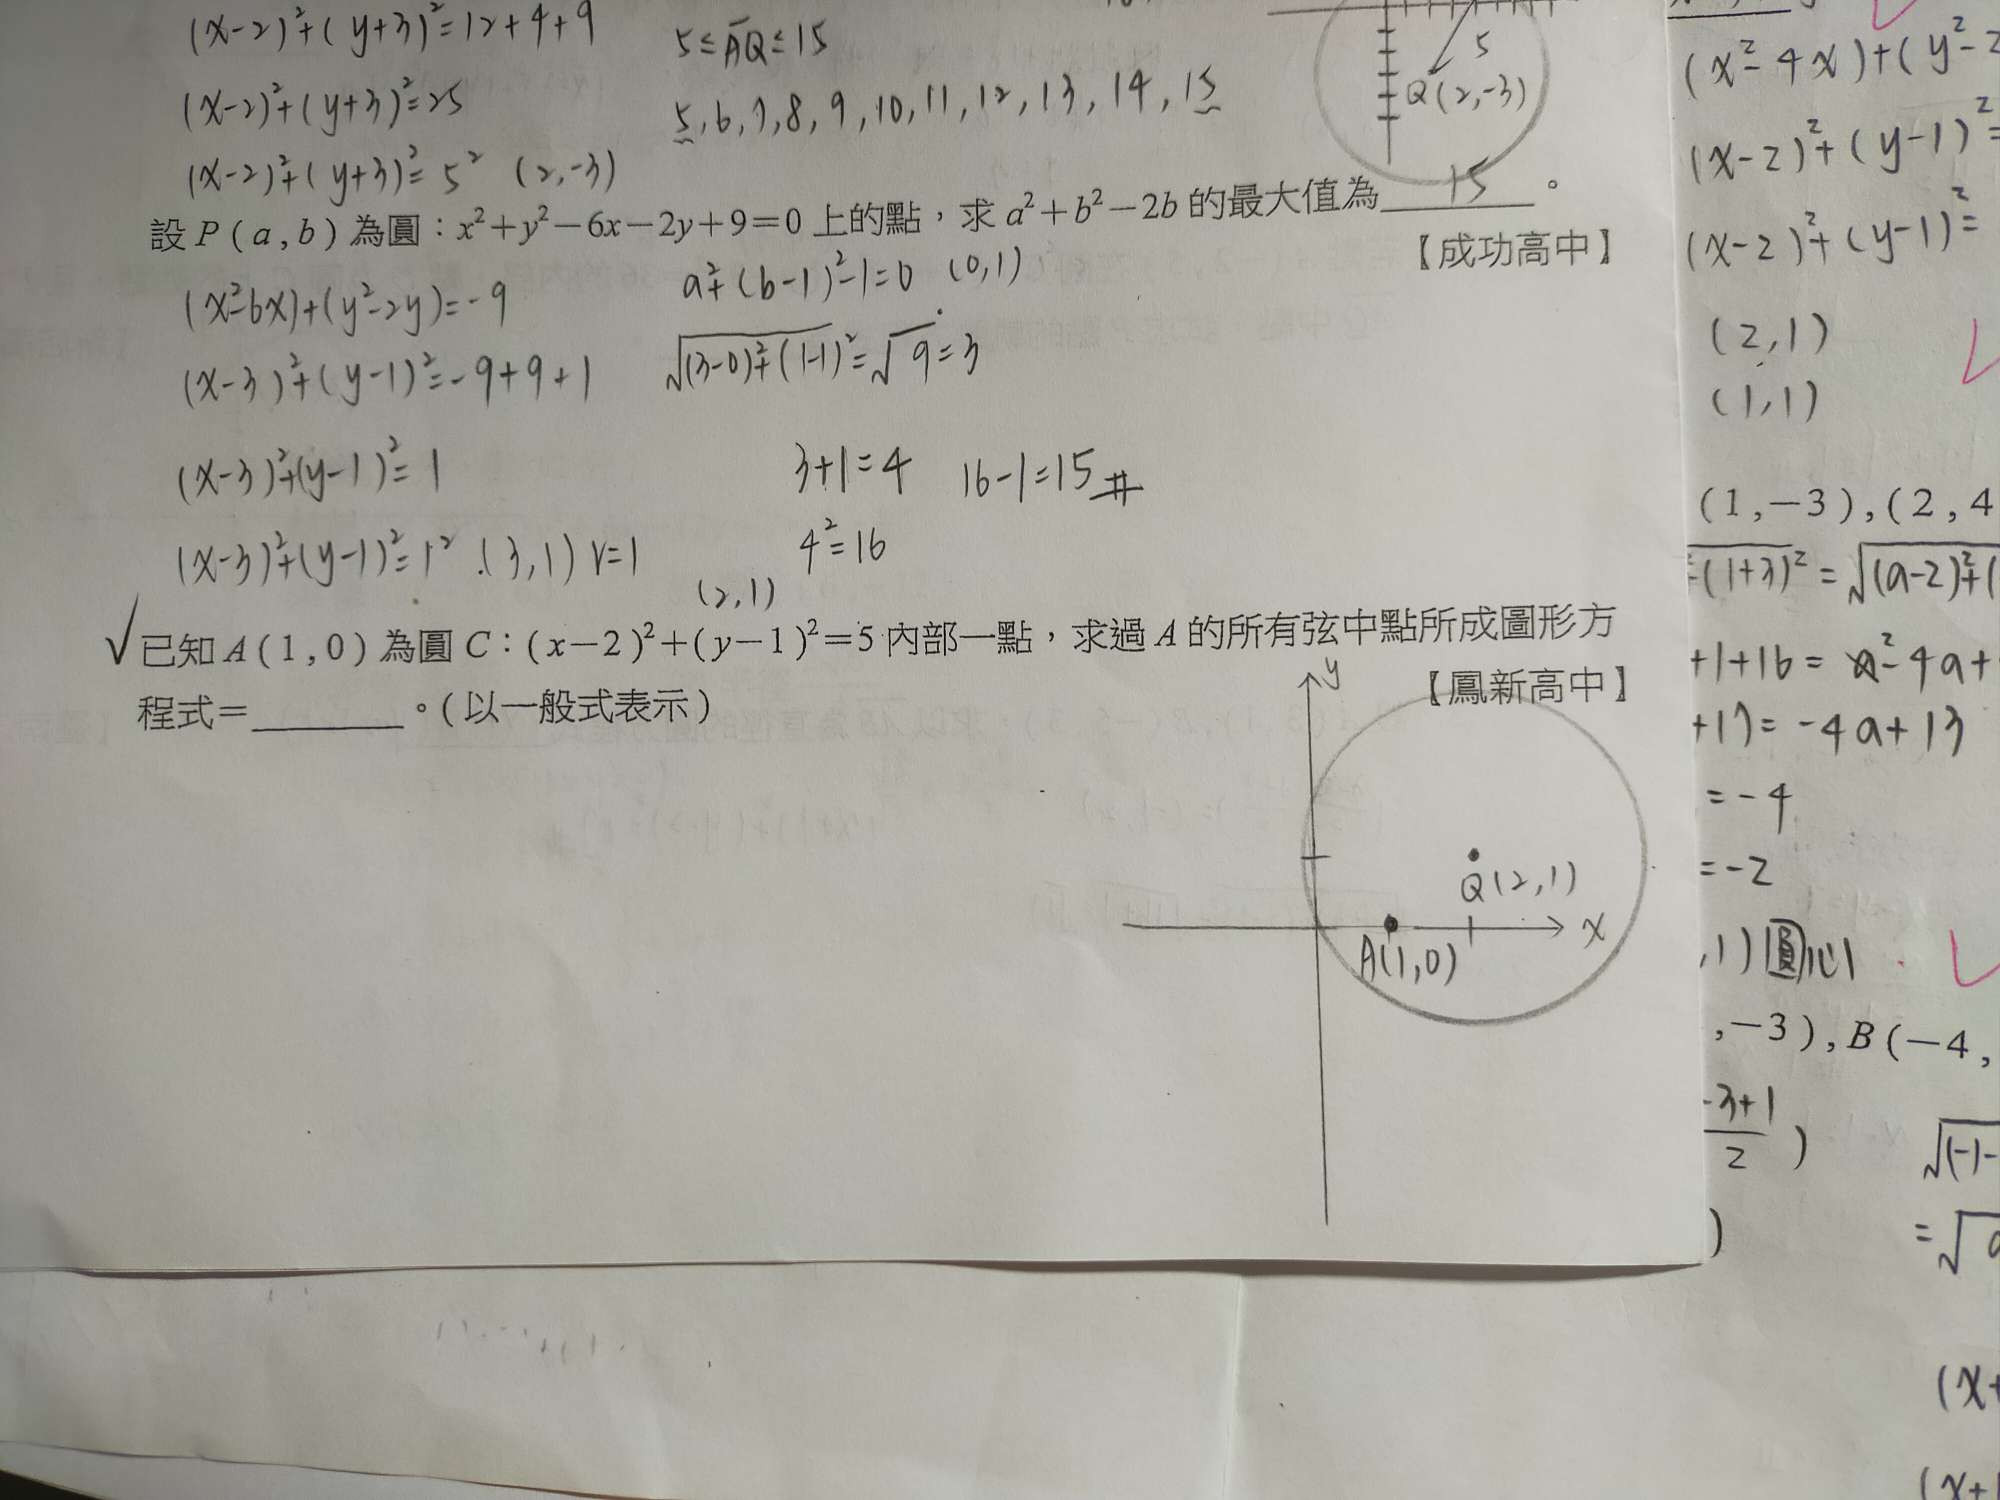 (x-2)²+(y+3)²=12+4+9
(x-2)²+(y+3)²=25
(x-2)²+(y+3)²=5² (2,-3)
5≤AQ≤15
5,6,7,8,9,10,11,12,13,14,15
5
Q(2,-3)
設P(a,b)為圓：x²+y²-6x-2y+9=0上的點，求a²+b²-2b的最大值為 15 。
【成功高中】
(x²-6x)+(y²-2y)=-9
(x-3)²+(y-1)²=-9+9+1
(x-3)²+(y-1)²=1
(x-3)²+(y-1)²=1² (3,1) r=1
a²+(b-1)²-1=0 (0,1)
√(3-0)²+(1-1)²=√9=3
3+1=4 16-1=15#
4²=16
(2,1)
√已知A(1,0)為圓C：(x-2)²+(y-1)²=5內部一點，求過A的所有弦中點所成圖形方
程式=＿＿＿。(以一般式表示)
【鳳新高中】
y
Q(2,1)
x
A(1,0)
(x²-4x)+(y²-2
(x-2)²+(y-1)²=
(x-2)²+(y-1)²=
(2,1)
(1,1)
(1,-3),(2,4
(1+3)²=√(a-2)²+(
+1+16=a²-4a+
+17=-4a+13
=-4
=-2
,1)圓心
,-3),B(-4,
-3+1
2
)
√(-1-
)
=√
(x+
(x+